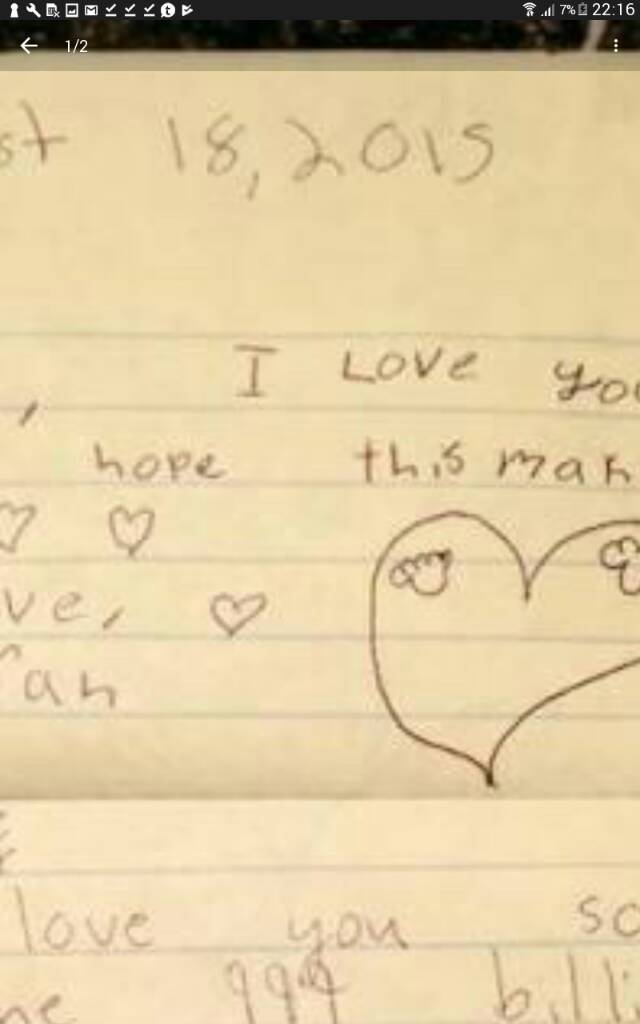 1/2 7% 22:16
st 18, 2015
, I Love you
hope this mak
ve,
ran
love you so
ne 999 billi